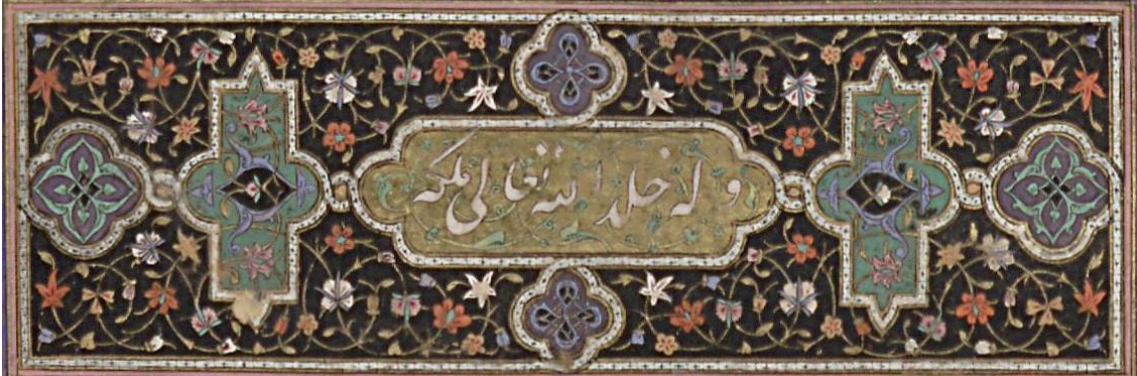 وله خلد الله تعالی ملکه